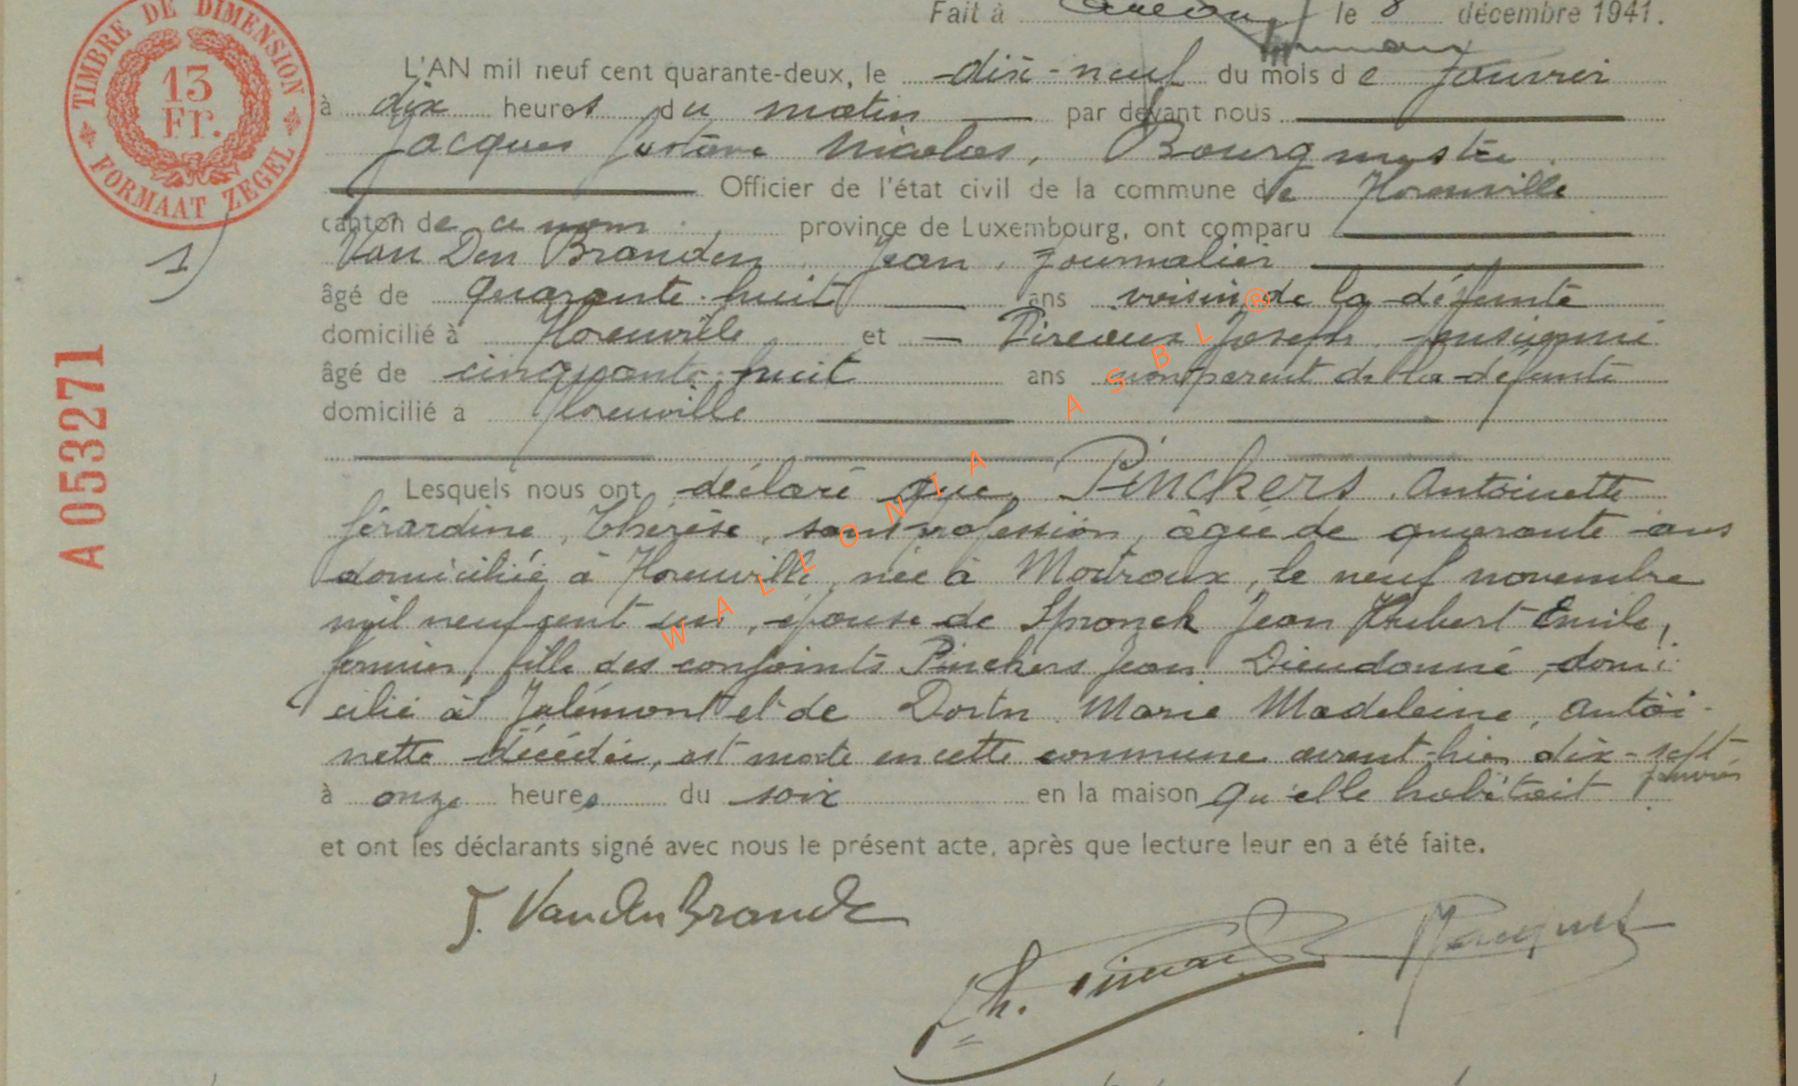 Fait à Arlon, le 8 décembre 1941.
TIMBRE DE DIMENSION
13
Fr.
FORMAAT ZEGEL
L'AN mil neuf cent quarante-deux, le dix-neuf du mois de Janvier
à dix heures du matin par devant nous
Jacques Gustave Nicolas, Bourgmestre.
Officier de l'état civil de la commune de Florenville
canton de ce nom province de Luxembourg, ont comparu
1)
Van Den Branden Jean, Journalier
âgé de quarante-huit ans voisin de la défunte
domicilié à Florenville et Joseph, pensionné
âgé de cinquante-huit ans non parent de la défunte
domicilié à Florenville
A 053271
Lesquels nous ont déclaré que Pinckers, Antoinette
Gérardine, Thérèse, sans profession, âgée de quarante ans
domiciliée à Florenville, née à Mortroux, le neuf novembre
mil neuf cent un, épouse de Spronck Jean Hubert Emile,
fermier, fille des conjoints Pinckers Jean Dieudonné, domi-
cilié à Julémont et de Dortu Marie Madeleine, Antoi-
nette décédée, est morte en cette commune avant-hier dix-sept
janvier
à onze heures du soir en la maison qu'elle habitait
et ont les déclarants signé avec nous le présent acte, après que lecture leur en a été faite.
J. Vanden Brande
WALLONIA ASBL ®